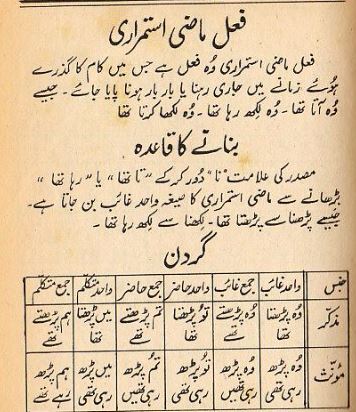 فعل ماضی استمراری
فعل ماضی استمراری وُہ فعل ہے جس میں کام کا گذرے
ہُوئے زمانے میں جاری رہنا یا بار بار ہونا پایا جائے۔ جیسے
وُہ آتا تھا۔ وُہ لکھ رہا تھا۔ وُہ لکھا کرتا تھا
بنانے کا قاعدہ
مصدر کی علامت "نا" دُور کر کے "تا تھا" یا "رہا تھا"
بڑھانے سے ماضی استمراری کا صیغہ واحد غائب بن جاتا ہے۔
جیسے پڑھنا سے پڑھتا تھا۔ لکھنا سے لکھ رہا تھا۔
گردن
جنس واحد غائب جمع غائب واحد حاضر جمع حاضر واحد متکلم جمع متکلم
مذکر وُہ پڑھتا وُہ پڑھتے تُو پڑھتا تم پڑھتے میں پڑھتا ہم پڑھتے
تھا تھے تھا تھے تھا تھے
مؤنث وُہ پڑھ وُہ پڑھ تُو پڑھ تُم پڑھ میں پڑھ ہم پڑھ
رہی تھی رہی تھیں رہی تھی رہی تھیں رہی تھی رہے تھے